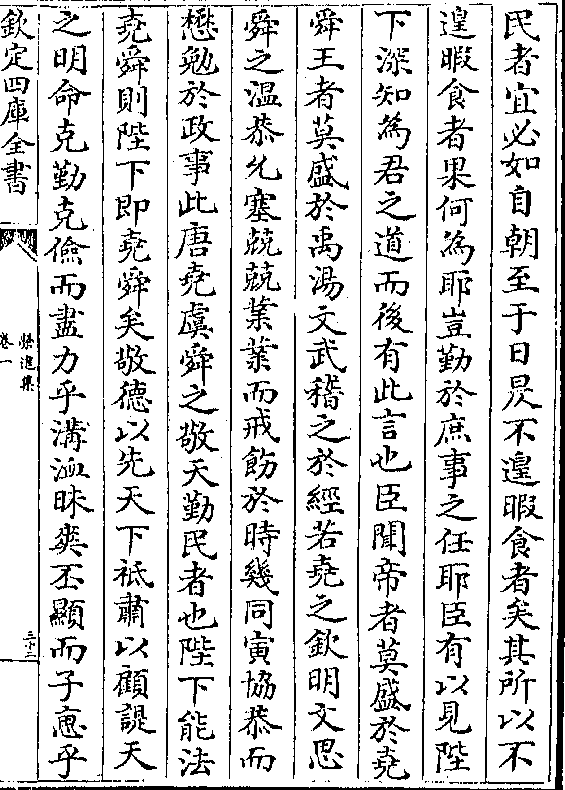 民者宜必如自朝至于日昃不遑暇食者矣其所以不
遑暇食者果何為耶豈勤於庶事之任耶臣有以見陛
下深知為君之道而後有此言也臣聞帝者莫盛於堯
舜王者莫盛於禹湯文武稽之於經若堯之欽明文思
舜之温恭允塞兢兢業業而戒飭於時幾同寅協恭而
懋勉於政事此唐堯虞舜之敬天勤民者也陛下能法
堯舜則陛下即堯舜矣敬德以先天下祗肅以顧諟天
之明命克勤克儉而盡力乎溝洫昧爽丕顯而子惠乎
欽定四庫全書
卷一
三十三